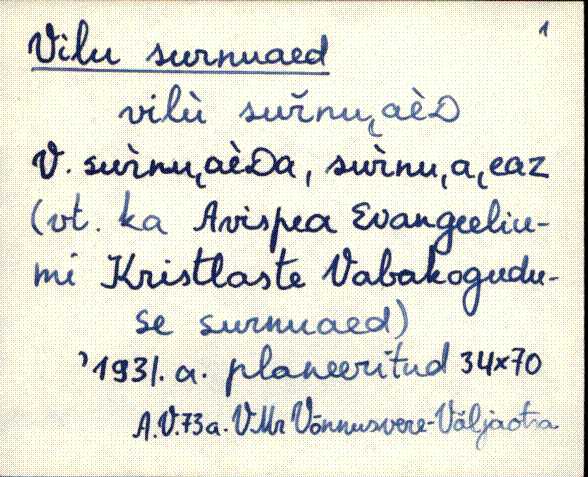 1
Vilu surnuaed
vilù sur̆nu‿aèD
V. sur̀nu‿aèDa, sur̀nu‿a‿eaz
(vt. ka Avispea Evangeeliu-
mi Kristlaste Vabakogudu-
se surnuaed)
’1931. a. planeeritud 34x70
A.V.73a. VMr Võnnusvere-Väljaotsa